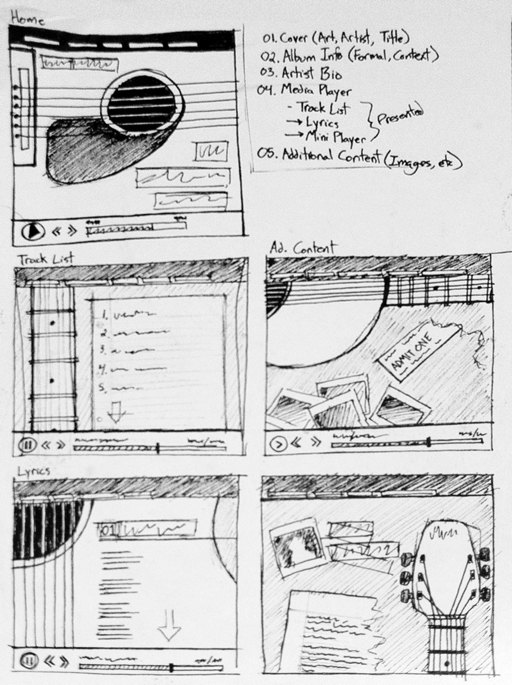 Home
01. Cover (Art, Artist, Title)
02. Album Info (Formal, Context)
03. Artist Bio
04. Media Player
- Track List
→ Lyrics
→ Mini Player
} Presented
05. Additional Content (Images, etc)
Track List
1.
2.
3.
4.
5.
Ad. Content
ADMIT ONE
Lyrics
01